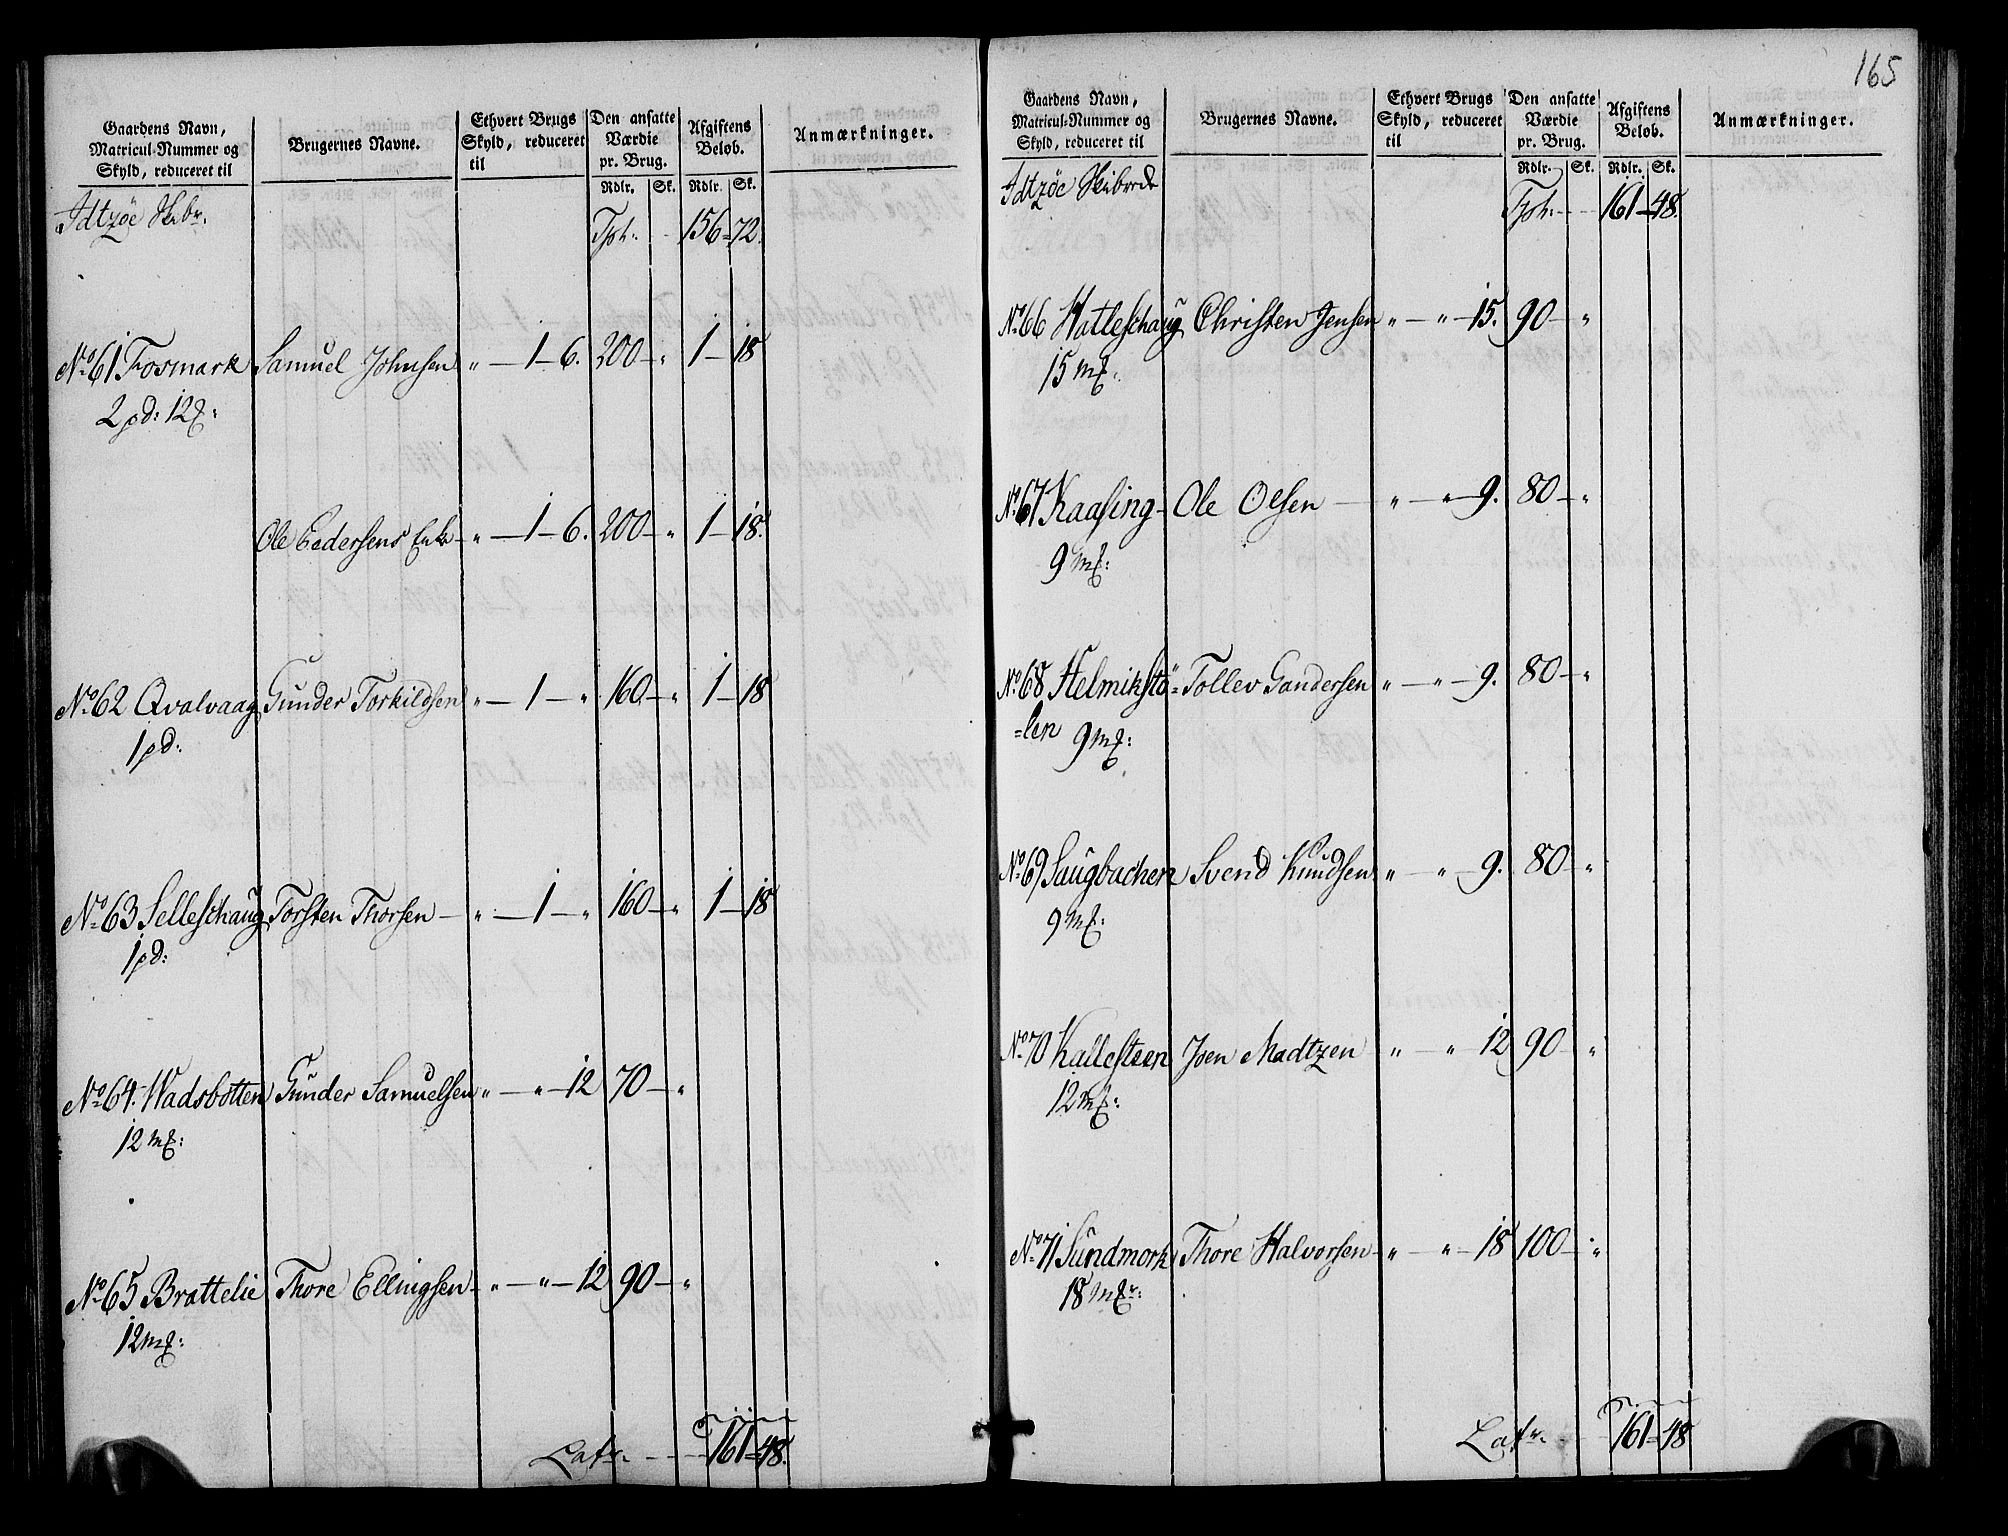 Gaardens Navn, Matricul-Nummer og Skyld, reduceret til | Brugernes Navne. | Ethvert Brugs Skyld, reduceret til | Den ansatte Værdie pr. Brug. | Afgiftens Beløb. | Anmærkninger.
Rdlr. Sk. Rdlr. Sk.
Idtzöe Skibr. Tpt: 156 - 72.
No 61 Fosmark Samuel Johnsen " - 1 - 6. 200 - " 1 - 18
2 pd: 12 ℔:
Ole Pedersens Enke - " - 1 - 6. 200 - " 1 - 18.
No 62 Qvalvaag Gunder Torkildsen " - 1 - " 160 - " 1 - 18
1 pd:
No 63 Selleschaug Torsten Thorsen - " - 1 - " 160 - " 1 - 18
1 pd:
No 64. Wadsbotten Gunder Samuelsen " - " - 12 70 - "
12 m℔:
No 65 Brattelie Thore Ellingsen - " - " - 12 90 - "
12 m℔:
Latr. - - - 161 - 48.
165
Gaardens Navn, Matricul-Nummer og Skyld, reduceret til | Brugernes Navne. | Ethvert Brugs Skyld, reduceret til | Den ansatte Værdie pr. Brug. | Afgiftens Beløb. | Anmærkninger.
Rdlr. Sk. Rdlr. Sk.
Idtzöe Skibrede Tpt: - - - 161 - 48.
No 66 Hatleschaug Christen Jensen " - " - 15. 90 - "
15 m℔:
No 67 Kaasing - Ole Olsen - " - " - 9. 80 - "
9 m℔:
No 68 Helmikstö= Tollev Gandersen " - " - 9. 80 - "
=len 9 m℔:
No 69 Saugbachen Svend Knudsen " - " - 9. 80 - "
9 m℔:
No 70 Kallesteen Joen Madtzen " - " 12 90 - "
12 m℔:
No 71 Sundmork Thore Halvorsen - " - " - 18 100 - "
18 m℔r:
Latr. - - - 161 - 48